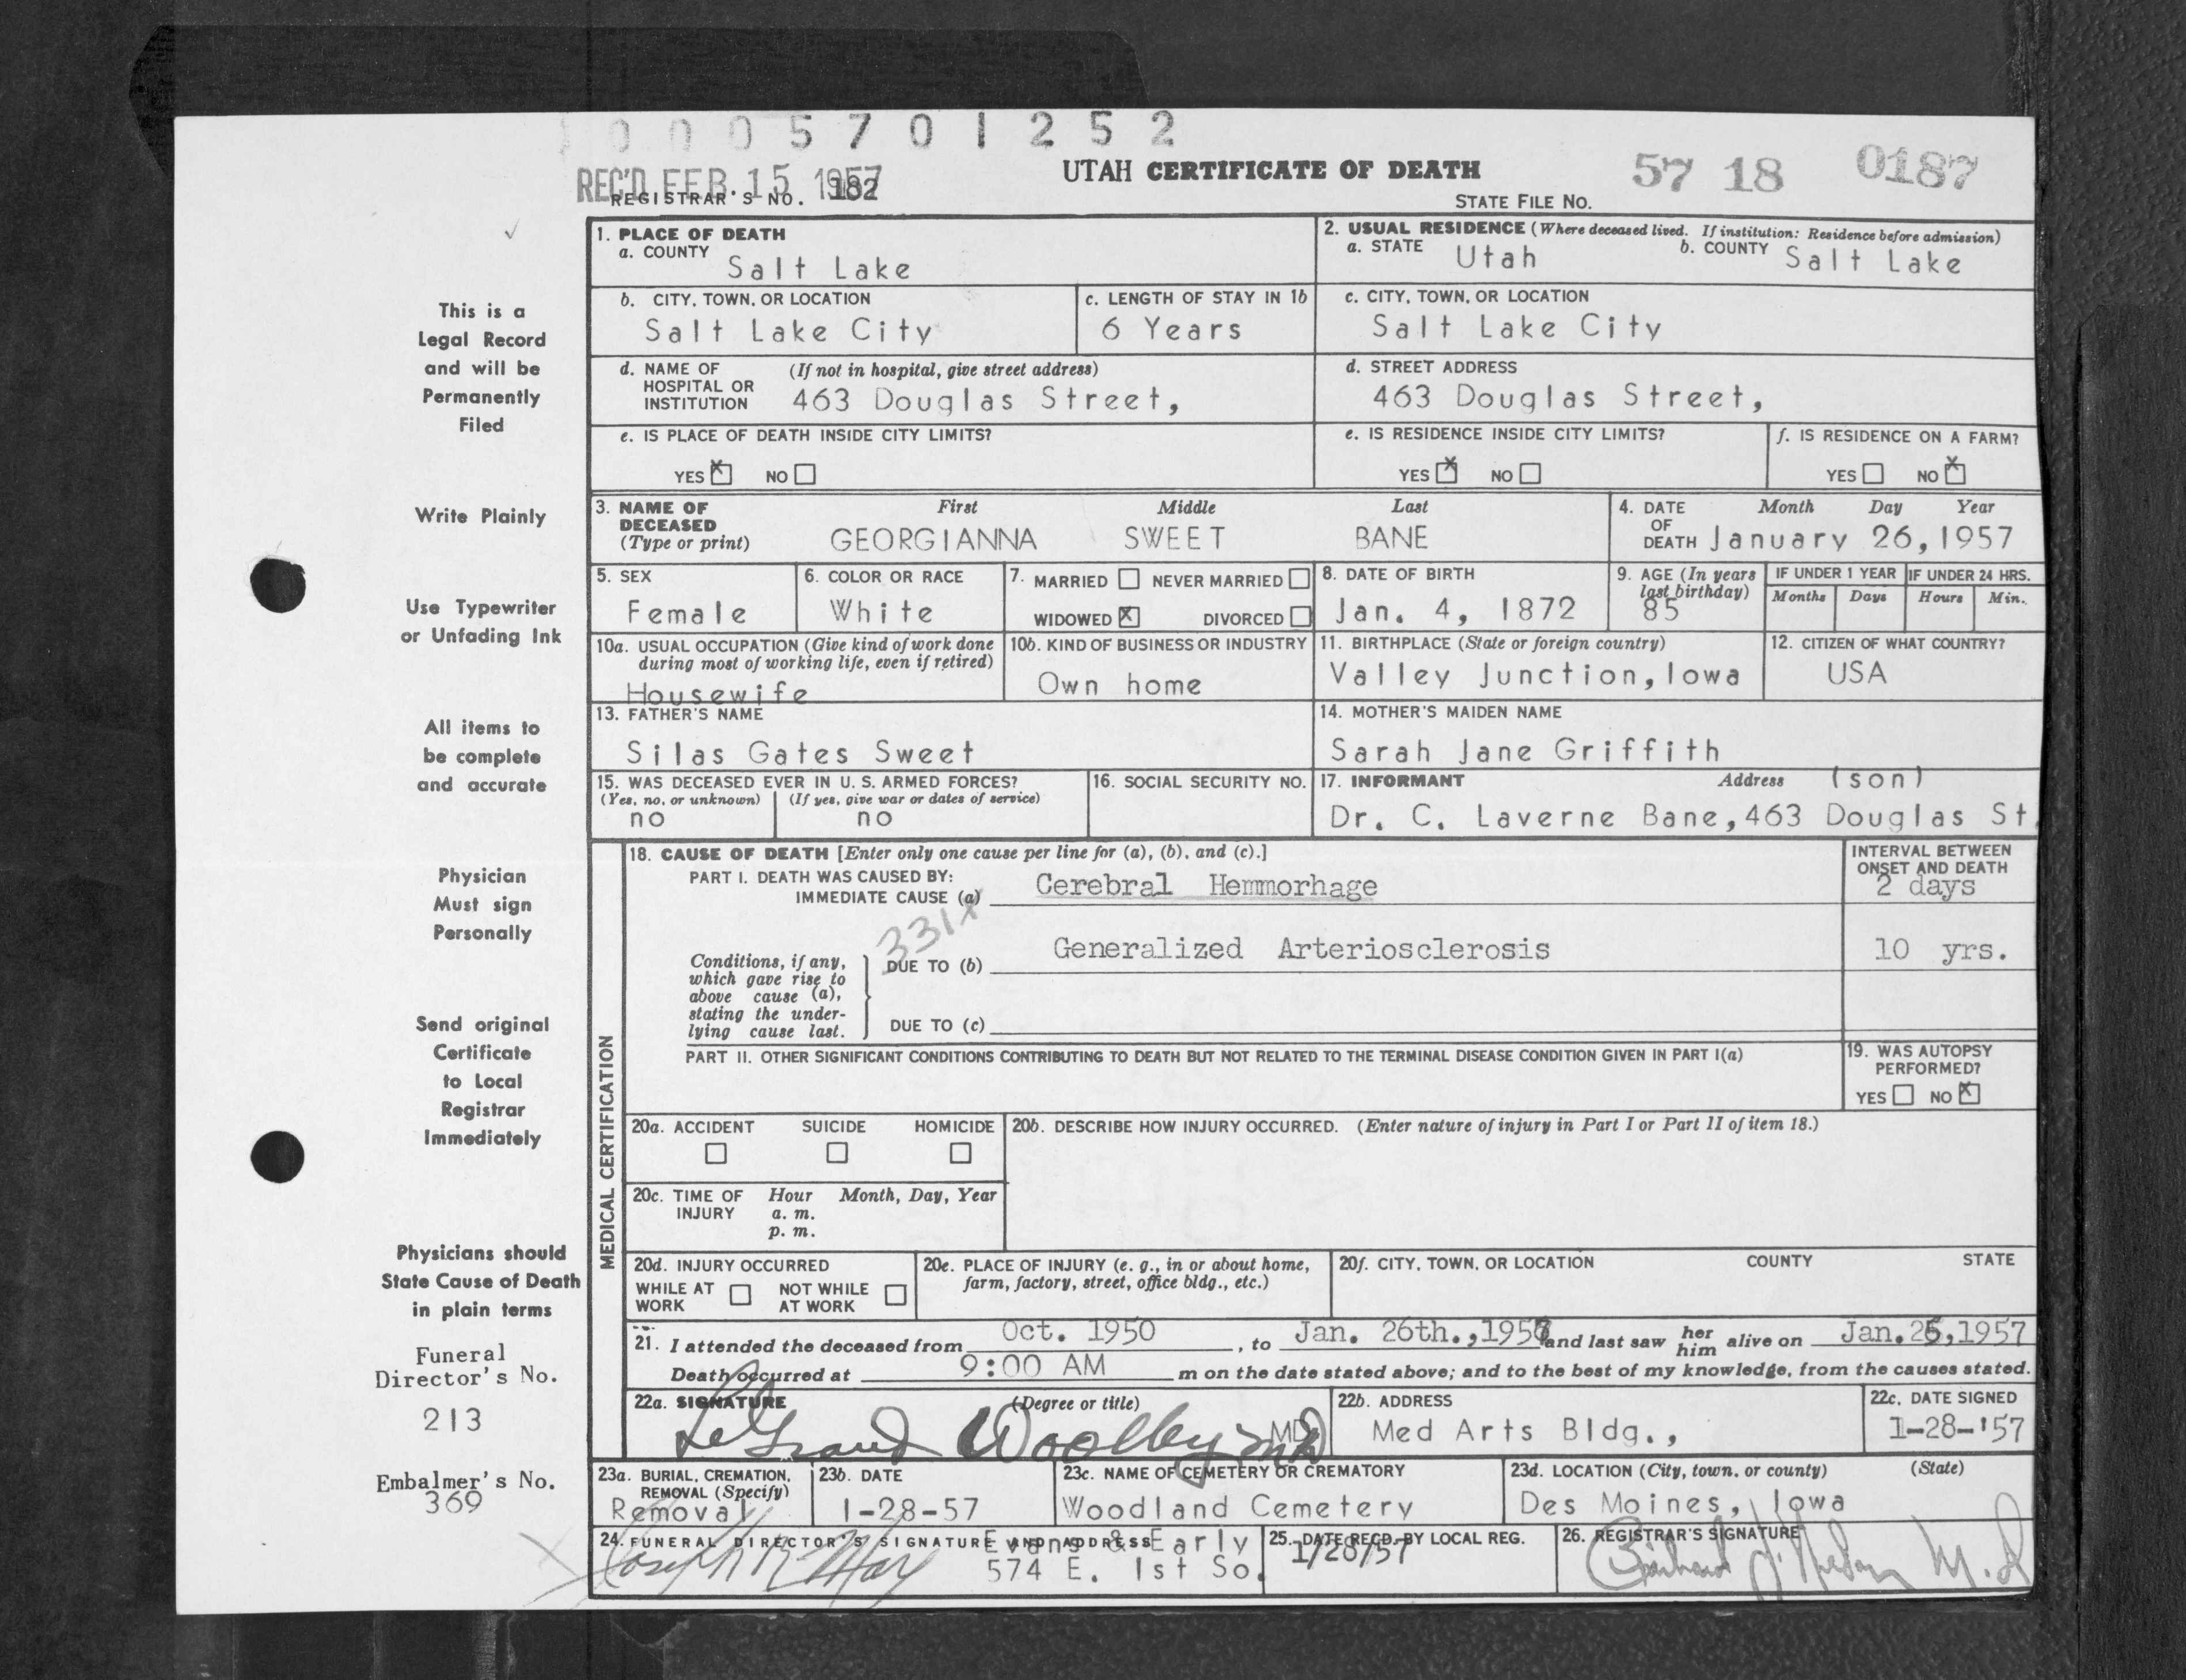 0005701252
REC'D FEB. 15 1957
UTAH CERTIFICATE OF DEATH
57 18 0187
REGISTRAR'S NO. 182
STATE FILE NO.
This is a
Legal Record
and will be
Permanently
Filed
Write Plainly
Use Typewriter
or Unfading Ink
All items to
be complete
and accurate
Physician
Must sign
Personally
Send original
Certificate
to Local
Registrar
Immediately
Physicians should
State Cause of Death
in plain terms
Funeral
Director's No.
213
Embalmer's No.
369
1. PLACE OF DEATH
a. COUNTY Salt Lake
2. USUAL RESIDENCE (Where deceased lived. If institution: Residence before admission)
a. STATE Utah b. COUNTY Salt Lake
b. CITY, TOWN, OR LOCATION
Salt Lake City
c. LENGTH OF STAY IN 1b
6 Years
c. CITY, TOWN, OR LOCATION
Salt Lake City
d. NAME OF (If not in hospital, give street address)
HOSPITAL OR
INSTITUTION 463 Douglas Street,
d. STREET ADDRESS
463 Douglas Street,
e. IS PLACE OF DEATH INSIDE CITY LIMITS?
YES X NO
e. IS RESIDENCE INSIDE CITY LIMITS?
YES X NO
f. IS RESIDENCE ON A FARM?
YES NO X
3. NAME OF First Middle Last
DECEASED
(Type or print) GEORGIANNA SWEET BANE
4. DATE Month Day Year
OF
DEATH January 26, 1957
5. SEX
Female
6. COLOR OR RACE
White
7. MARRIED NEVER MARRIED
WIDOWED X DIVORCED
8. DATE OF BIRTH
Jan. 4, 1872
9. AGE (In years
last birthday)
85
IF UNDER 1 YEAR
Months Days
IF UNDER 24 HRS.
Hours Min.
10a. USUAL OCCUPATION (Give kind of work done
during most of working life, even if retired)
Housewife
10b. KIND OF BUSINESS OR INDUSTRY
Own home
11. BIRTHPLACE (State or foreign country)
Valley Junction, Iowa
12. CITIZEN OF WHAT COUNTRY?
USA
13. FATHER'S NAME
Silas Gates Sweet
14. MOTHER'S MAIDEN NAME
Sarah Jane Griffith
15. WAS DECEASED EVER IN U. S. ARMED FORCES?
(Yes, no, or unknown) (If yes, give war or dates of service)
no no
16. SOCIAL SECURITY NO.
17. INFORMANT Address (son)
Dr. C. Laverne Bane, 463 Douglas St.
MEDICAL CERTIFICATION
18. CAUSE OF DEATH [Enter only one cause per line for (a), (b), and (c).]
PART I. DEATH WAS CAUSED BY:
IMMEDIATE CAUSE (a) Cerebral Hemmorhage
INTERVAL BETWEEN
ONSET AND DEATH
2 days
331X
Conditions, if any,
which gave rise to
above cause (a),
stating the under-
lying cause last.
DUE TO (b) Generalized Arteriosclerosis
10 yrs.
DUE TO (c)
PART II. OTHER SIGNIFICANT CONDITIONS CONTRIBUTING TO DEATH BUT NOT RELATED TO THE TERMINAL DISEASE CONDITION GIVEN IN PART I(a)
19. WAS AUTOPSY
PERFORMED?
YES NO X
20a. ACCIDENT SUICIDE HOMICIDE
20b. DESCRIBE HOW INJURY OCCURRED. (Enter nature of injury in Part I or Part II of item 18.)
20c. TIME OF Hour Month, Day, Year
INJURY a. m.
p. m.
20d. INJURY OCCURRED
WHILE AT WORK NOT WHILE AT WORK
20e. PLACE OF INJURY (e. g., in or about home,
farm, factory, street, office bldg., etc.)
20f. CITY, TOWN, OR LOCATION COUNTY STATE
21. I attended the deceased from Oct. 1950, to Jan. 26th., 1957 and last saw her him alive on Jan. 26, 1957
Death occurred at 9:00 AM m on the date stated above; and to the best of my knowledge, from the causes stated.
22a. SIGNATURE (Degree or title)
LeGrand Woolley MD MD
22b. ADDRESS
Med Arts Bldg.,
22c. DATE SIGNED
1-28-'57
23a. BURIAL, CREMATION,
REMOVAL (Specify)
Removal
23b. DATE
1-28-57
23c. NAME OF CEMETERY OR CREMATORY
Woodland Cemetery
23d. LOCATION (City, town, or county) (State)
Des Moines, Iowa
24. FUNERAL DIRECTOR'S SIGNATURE AND ADDRESS
Evans & Early
574 E. 1st So.
25. DATE RECD. BY LOCAL REG.
1/28/57
26. REGISTRAR'S SIGNATURE
M.D.